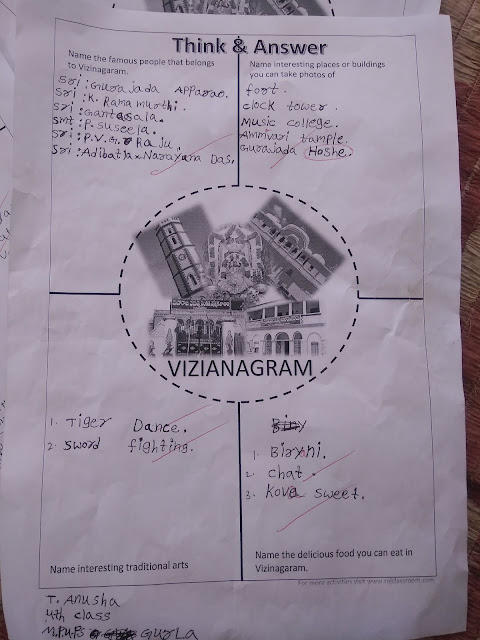 Think & Answer
Name the famous people that belongs
to Vizinagaram.
Sri : Gurajada Apparao.
Sri : K. Ramamurthi.
Sri : Gantasala.
Smt : P. Suseela.
Sri : P.V.G. Raju.
Sri : Adibatla Narayana Das.
Name interesting places or buildings
you can take photos of
fort.
clock tower.
Music college.
Ammivari tample.
Gurajada Hoshe.
VIZIANAGRAM
1. Tiger Dance.
2. Sword fighting.
Name interesting traditional arts
Biry
1. Biryni.
2. Chat.
3. Kova Sweet.
Name the delicious food you can eat in
Vizinagaram.
For more activities visit www.
T. Anusha
4th class
M.P.U.P.S Gurla